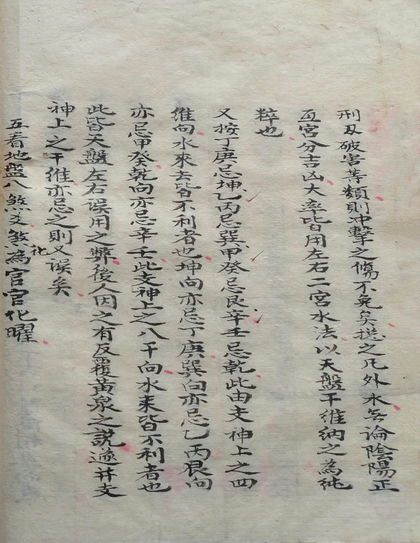 刑刃破害等類則冲擊之傷不免矣揔之凡外水無論陰陽正
互宮分吉凶大率皆用左右二宮水法以天盤干維納之為純
粹也
又按丁庚忌坤乙丙忌巽甲癸忌艮辛壬忌乾此由支神上之四
維向水來去皆不利者也坤向亦忌丁庚巽向亦忌乙丙艮向
亦忌甲癸乾向亦忌辛壬此支神上之八干向水来皆不利者也
此皆天盤左右误用之弊後人因之有反覆黃泉之説遂并支
神上之干維亦忌之則又误矣
五看地盤八煞又煞為官官化曜
化